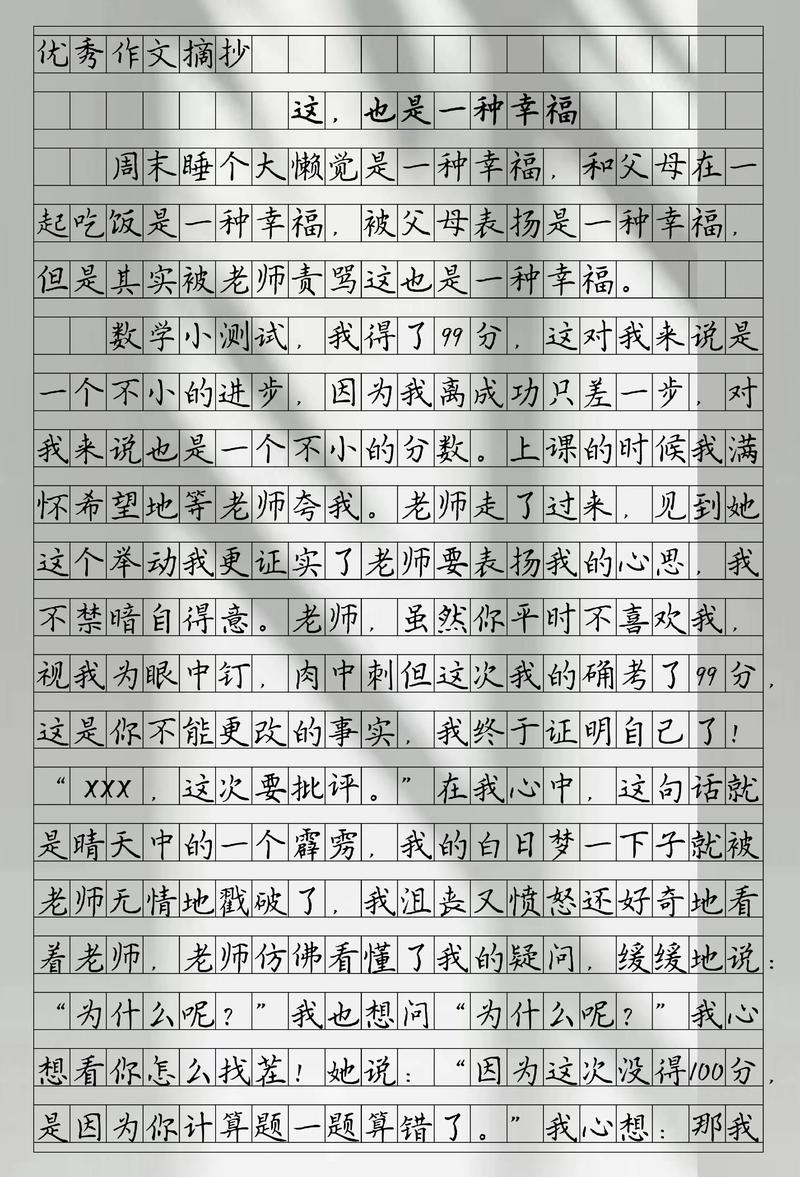 优秀作文摘抄
这，也是一种幸福
周末睡个大懒觉是一种幸福，和父母在一
起吃饭是一种幸福，被父母表扬是一种幸福，
但是其实被老师责骂这也是一种幸福。
数学小测试，我得了99分，这对我来说是
一个不小的进步，因为我离成功只差一步，对
我来说也是一个不小的分数。上课的时候我满
怀希望地等老师夸我。老师走了过来，见到她
这个举动我更证实了老师要表扬我的心思，我
不禁暗自得意。老师，虽然你平时不喜欢我，
视我为眼中钉，肉中刺但这次我的确考了99分，
这是你不能更改的事实，我终于证明自己了！
“XXX，这次要批评。”在我心中，这句话就
是晴天中的一个霹雳，我的白日梦一下子就被
老师无情地戳破了，我沮丧又愤怒还好奇地看
着老师，老师仿佛看懂了我的疑问，缓缓地说：
“为什么呢？”我也想问“为什么呢？”我心
想看你怎么找茬！她说：“因为这次没得100分，
是因为你计算题一题算错了。”我心想：那我